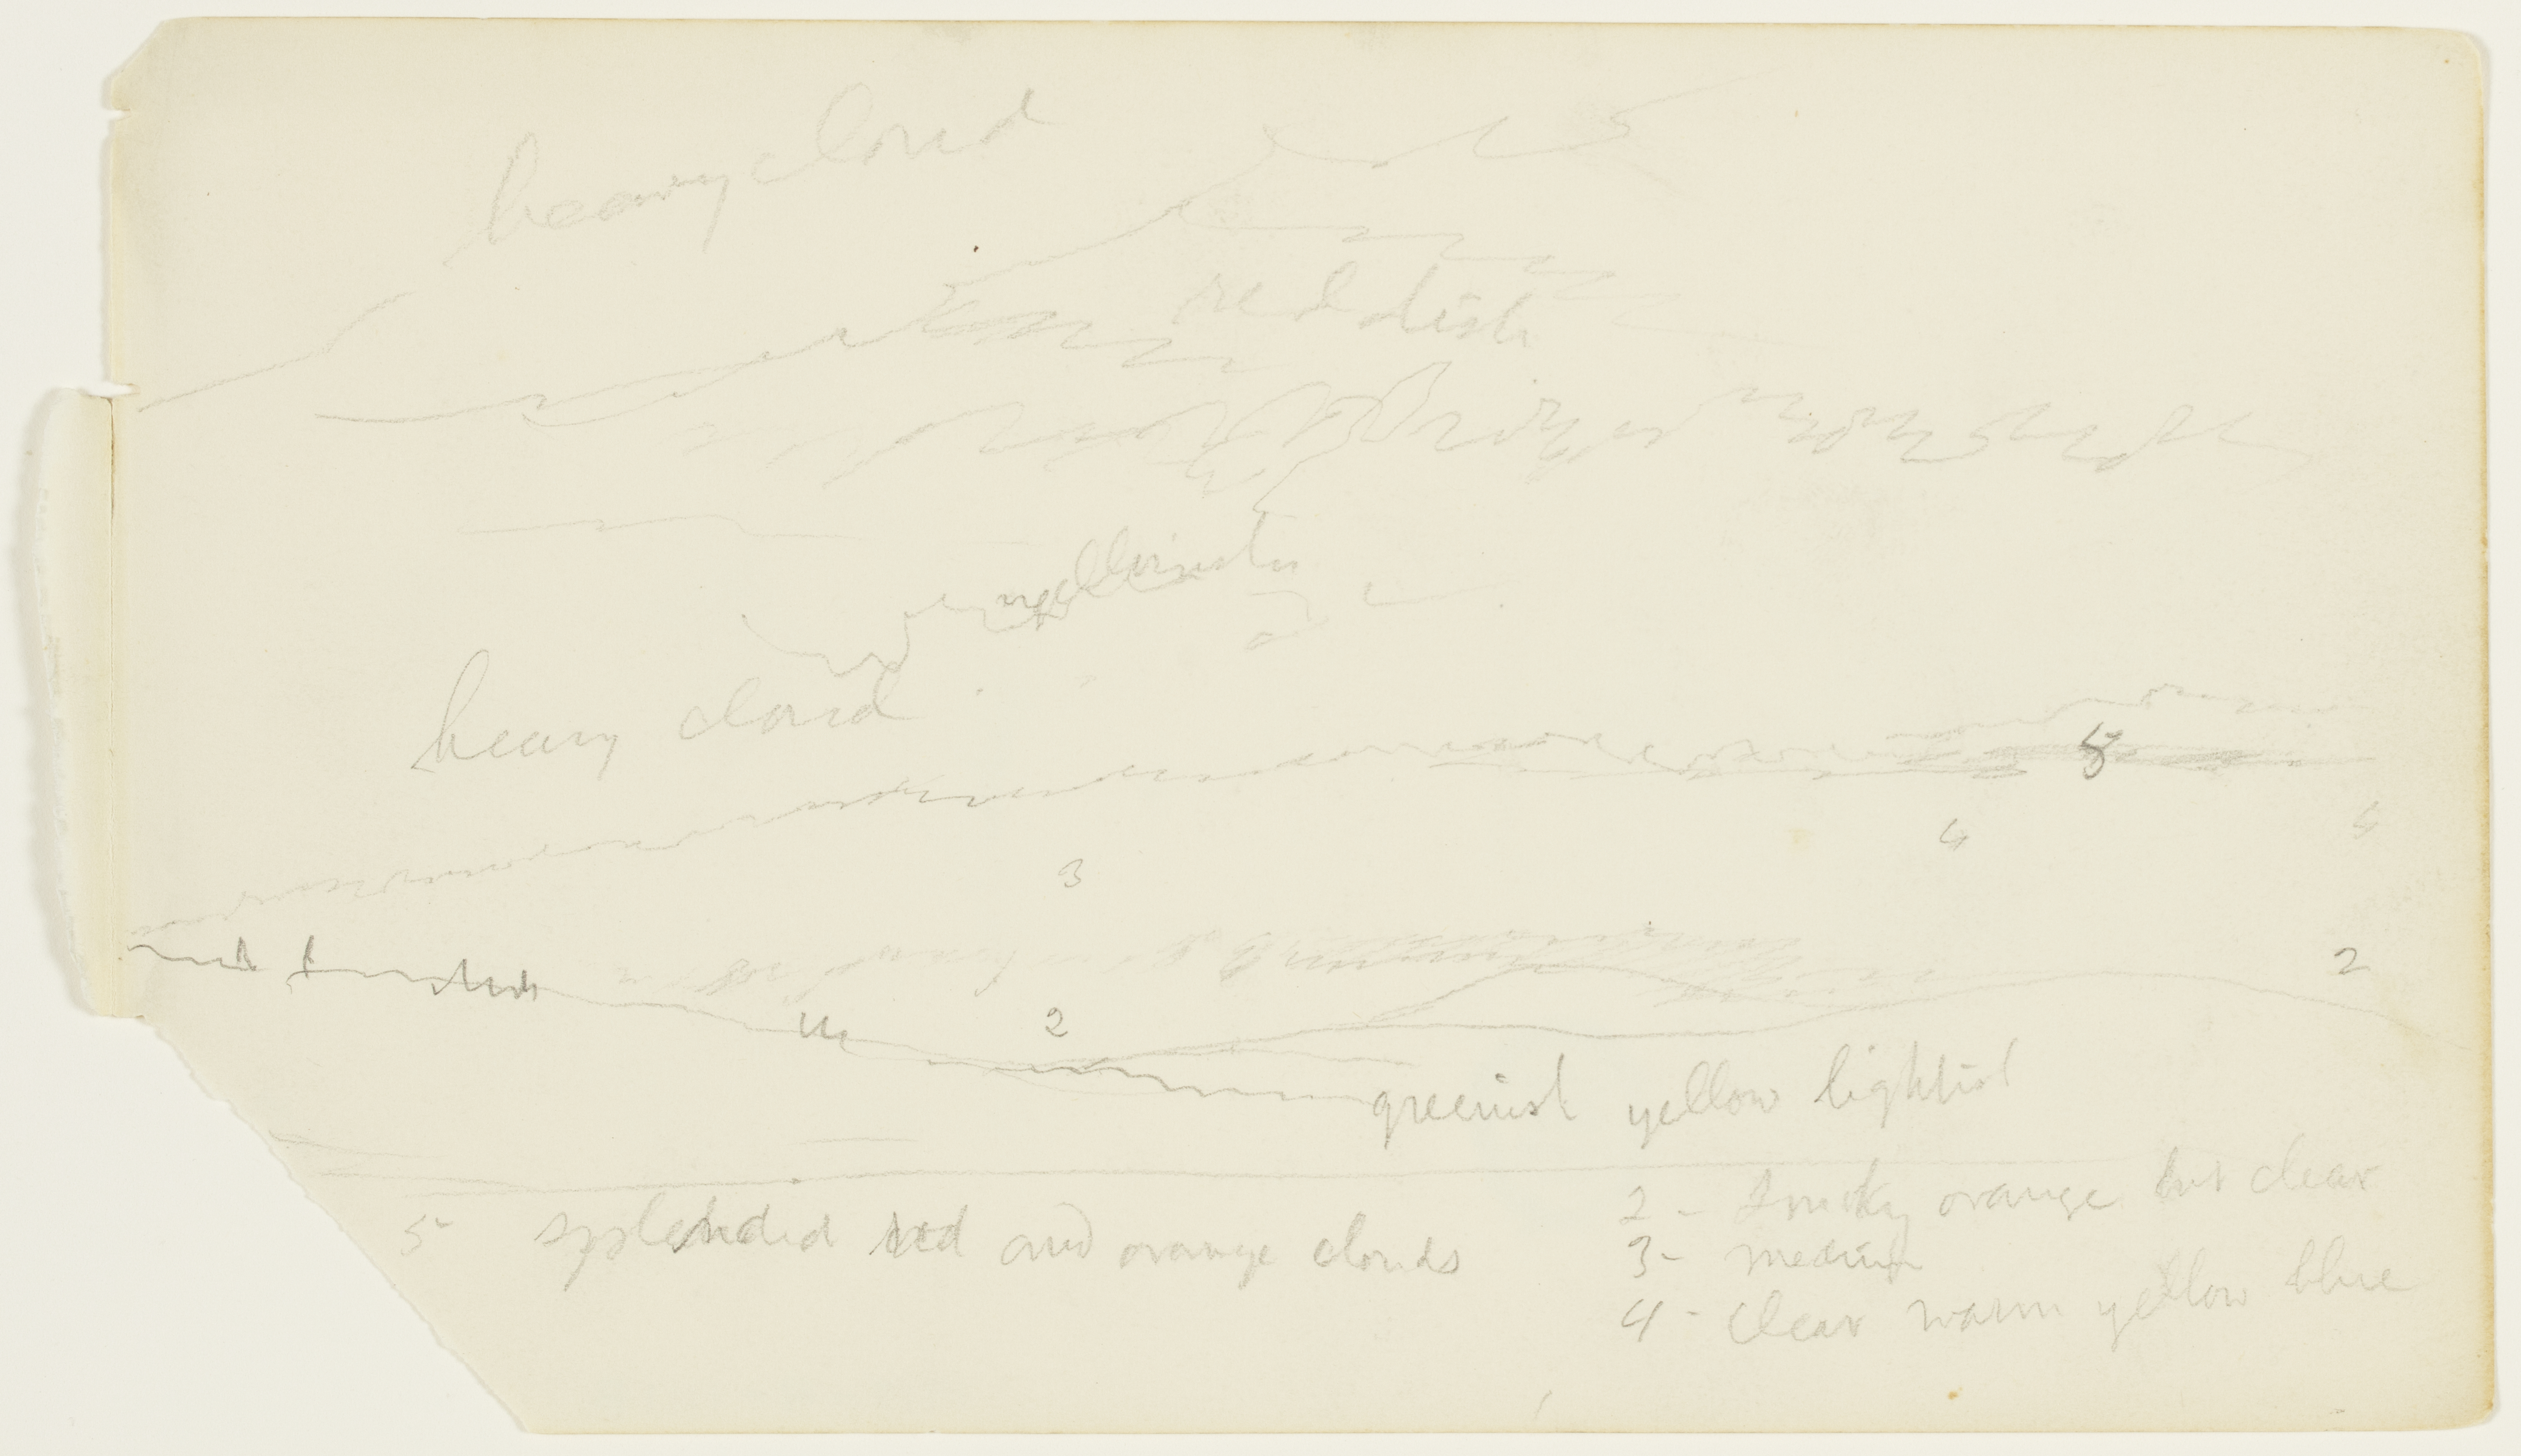 heavy cloud
reddish
yellowish
heavy cloud
5
4
4
3
2
2
greenish yellow light
2 - Smoky orange but clear
5 splendid red and orange clouds
3 - medium
4 - clear warm yellow blue